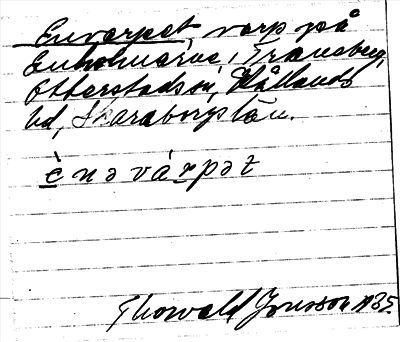 Envarpet, varp på
Enholmarna, Traneberg,
Otterstads sn, Kållands
hd, Skaraborgs län.
è n ə v á r p ə t
Thorvald Jonsson 1935.